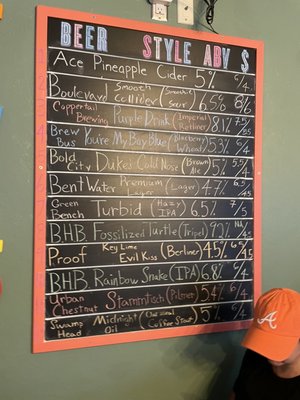 BEER STYLE ABV $
Ace Pineapple Cider 5% 6/4
Boulevard Smooth Collider (Smoothie Sour) 6.6% 8/6
Coppertail Brewing Purple Drink (Imperial Berliner) 8.1%
Brew Bus You're My Boy Blue (Blueberry Wheat) 5.3% 5/4
Bold City Duke's Cold Nose (Brown Ale) 5%
Bent Water Premium Lager (Lager) 4.7%
Green Bench Turbid (Hazy IPA) 6.5% 7/5
BHB Fossilized Turtle (Tripel)
Proof Key Lime Evil Kiss (Berliner) 4.5%
BHB Rainbow Snake (IPA) 6.8% 6/4
Urban Chestnut Stammtisch (Pilsner) 5.4% 6/4
Swamp Head Midnight Oil (Oatmeal Coffee Stout) 5%
A